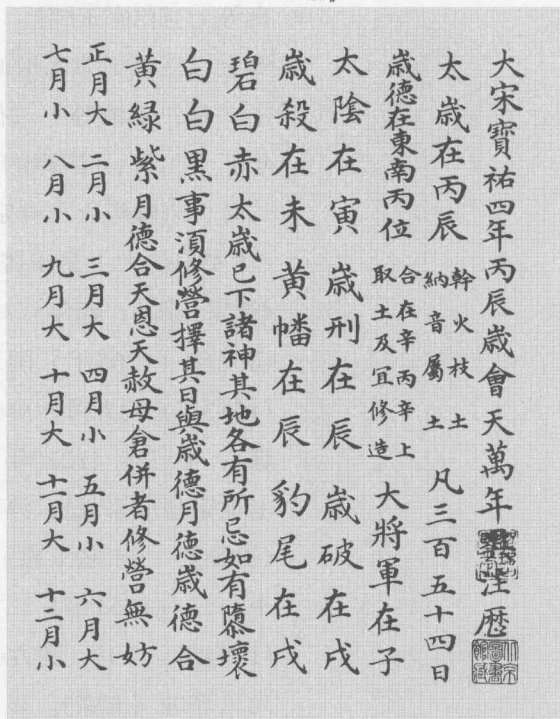 大宋寶祐四年丙辰歲會天萬年具注歷
太歲在丙辰 幹火枝土 納音屬土 凡三百五十四日
歲德在東南丙位 合在辛丙辛上 取土及冝修造 大將軍在子
太陰在寅 歲刑在辰 歲破在戌
歲殺在未 黃幡在辰 豹尾在戌
碧白赤 太歲已下諸神其地各有所忌如有隳壞
白白黑 事湏修營擇其日與歲德月德歲德合
黃綠紫 月德合天恩天赦母倉併者修營無妨
正月大 二月小 三月大 四月小 五月小 六月大
七月小 八月小 九月大 十月大 十一月大 十二月小